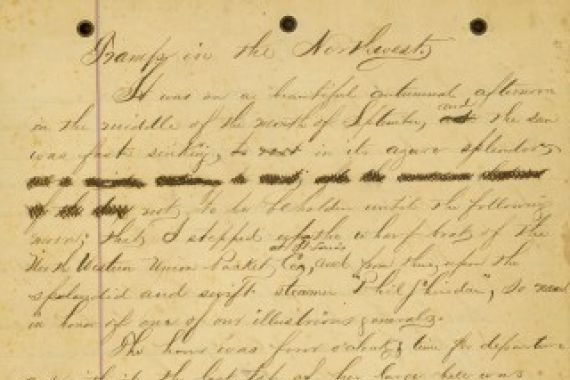 Tramps in the Northwest.
It was on a beautiful autumnal afternoon
in the middle of the month of September, and the sun
was fast sinking, to rest in its azure splendor,
not to be beholden until the following
morn, that I stepped upon the wharf boat of the
at St Louis
North Western Union Packet Co, and from thence, upon the
splendid and swift steamer "Phil Sheridan", so named
in honor of one of our illustrious generals.
The hour was four o'clock; time for departure
and with the last tap of her large bell was